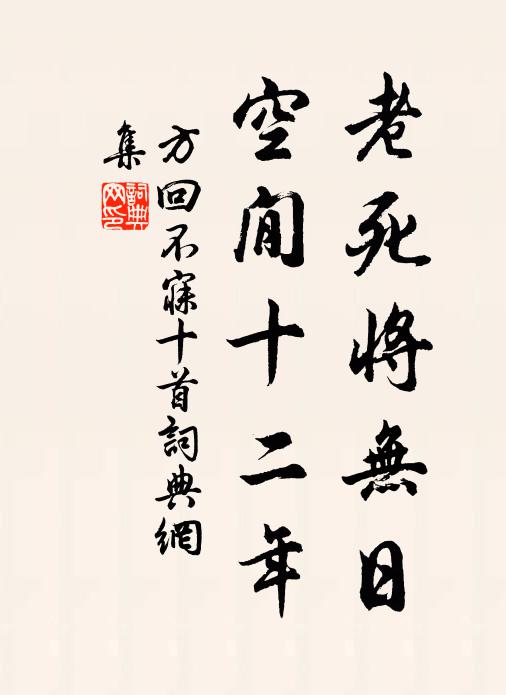 老死將無日
空閒十二年
方回不寐十首詞典網
集
詞典
网印